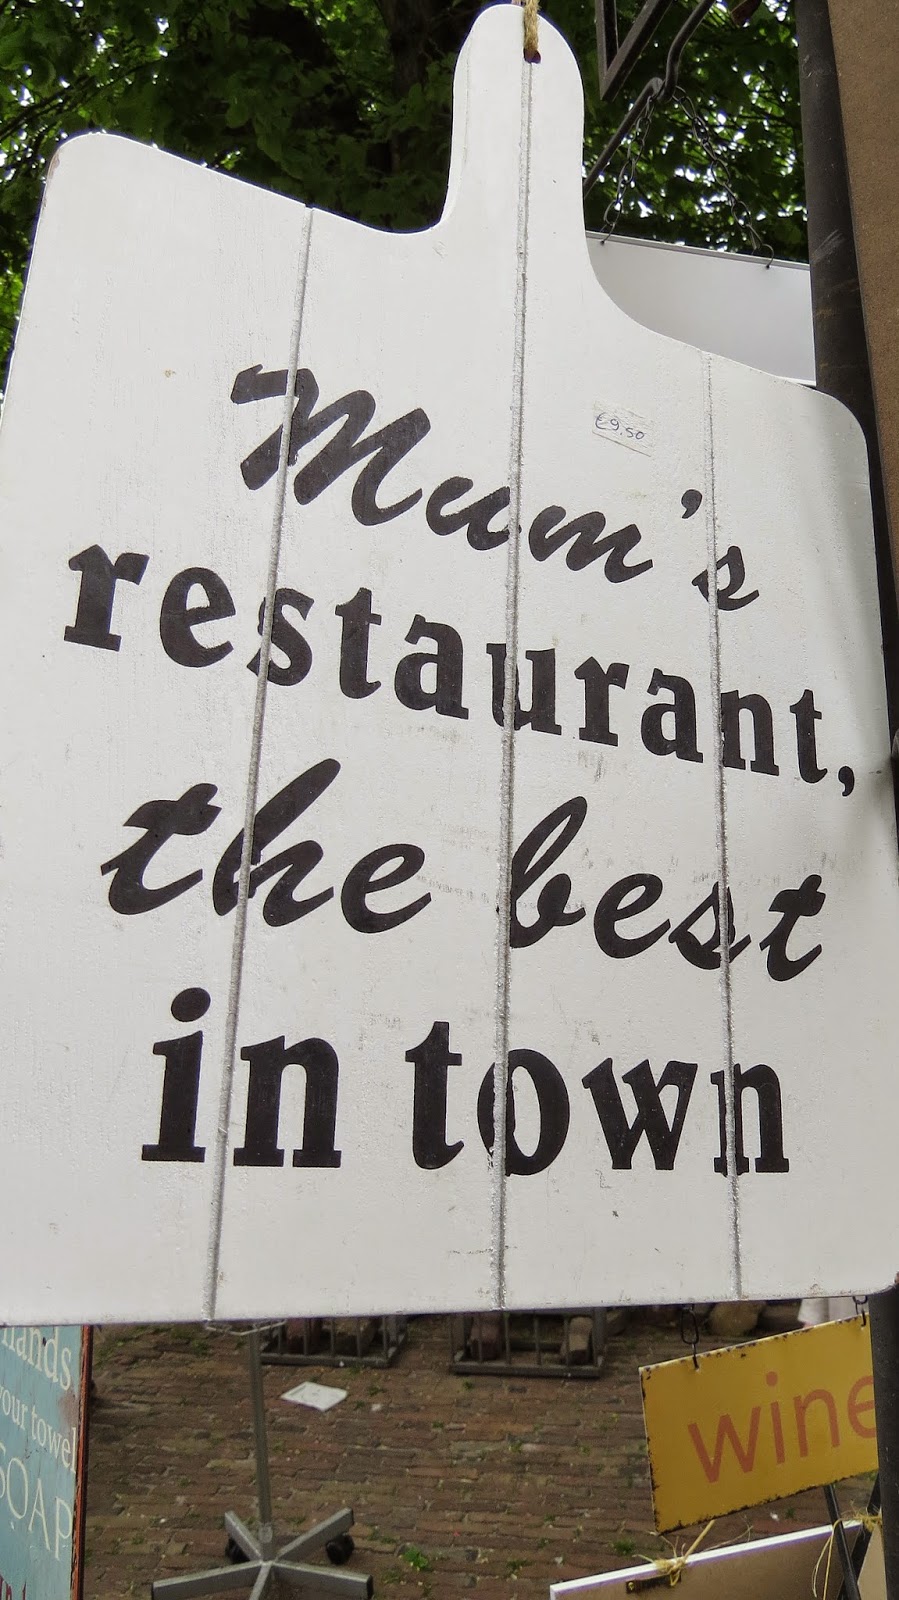 €9.50
Mum's
restaurant,
the best
in town
hands.
your towel
SOAP
wine